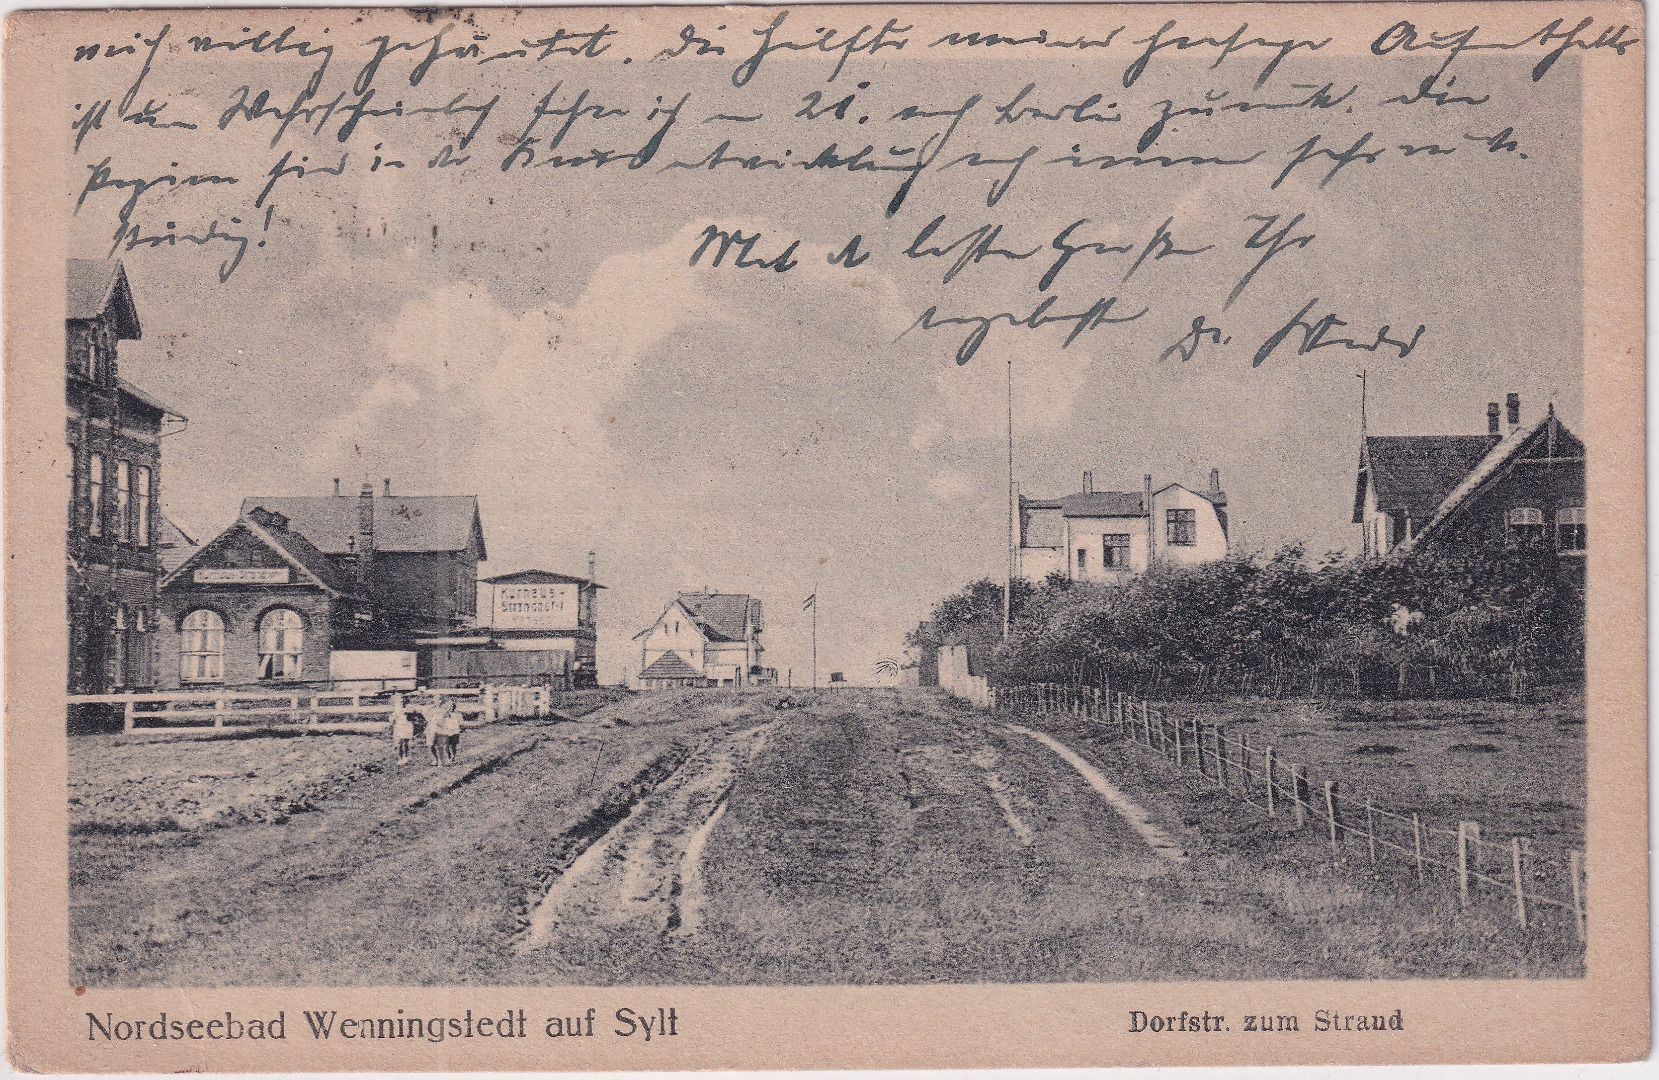 mich völlig gehäutet. Die Hälfte meines hiesigen Aufenthalts
ist um. Wahrscheinlich fahre ich am 21. nach Berlin zurück. Die
sind in der Kursentwicklung noch immer sehr rück-
ständig!
Mit den besten Grüßen Ihr
ergebenster Dr.
Kurhaus-
Strandhotel
Nordseebad Wenningstedt auf Sylt
Dorfstr. zum Strand